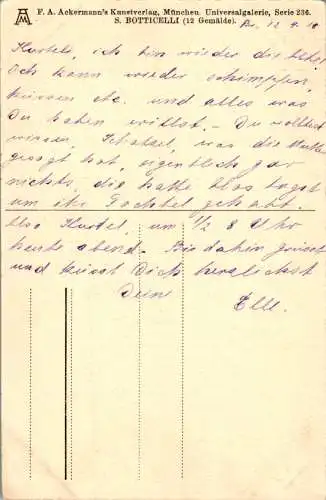 F. A. Ackermann's Kunstverlag, München. Universalgalerie, Serie 236.
S. BOTTICELLI (12 Gemälde).
12. 9.
Kurtel, ich bin wieder die
Ich kann wieder schimpfen,
etc. und alles was
Du haben willst. - Du wolltest
wissen, was die Mutter
gesagt hat, eigentlich gar
nichts, die hatte blos Angst
um ihr gehabt.
Also Kurtel, um 1/2 8 Uhr
heute abend. Bis dahin grüsst
und küsst Dich herzlichst
Deine
Elli.